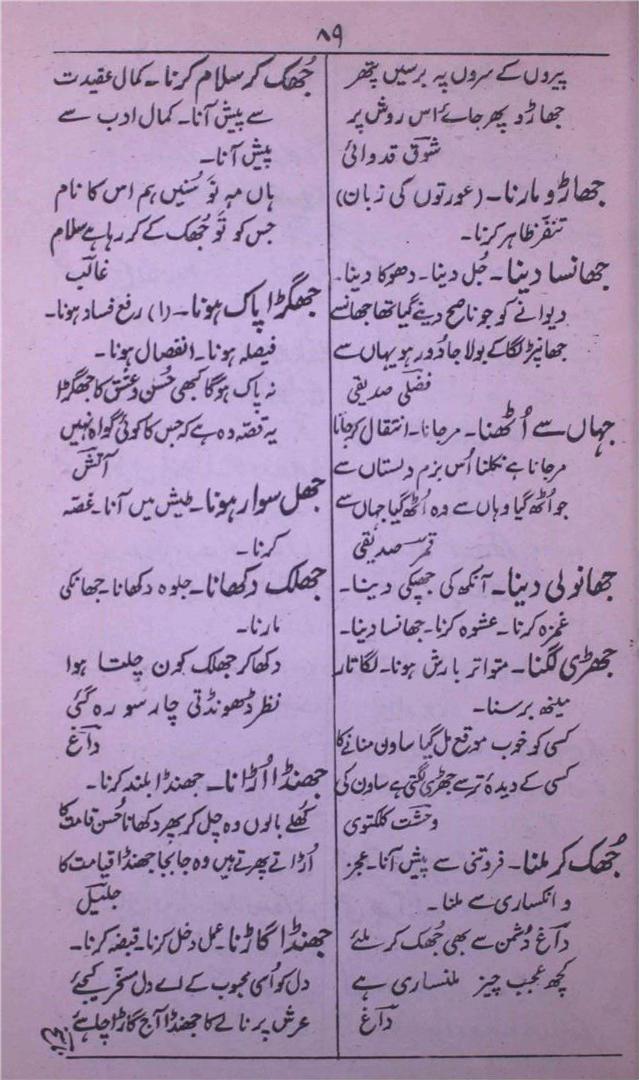 ۸۹
پیروں کے سروں پہ برسیں پتھر
جھاڑو پھر جائے اس روش پر
شوق قدوائی
جھاڑو مارنا۔ (عورتوں کی زبان)
تنفّر ظاہر کرنا۔
جھانسا دینا۔ جُل دینا۔ دھوکا دینا۔
دیوانے کو جو ناصح دینے گیا تھا جھانسے
جھانپڑ لگا کے بولا جا دُور ہو یہاں سے
فضلی صدیقی
جہاں سے اُٹھنا۔ مرجانا۔ انتقال کرجانا
مرجانا ہے نکلنا اُس بزم دلستاں سے
جو اُٹھ گیا وہاں سے وہ اُٹھ گیا جہاں سے
قمر صدیقی
جھانولی دینا۔ آنکھ کی جھپکی دینا۔
غمزہ کرنا۔ عشوہ کرنا۔ جھانسا دینا۔
جھڑی لگنا۔ متواتر بارش ہونا۔ لگاتار
مینھ برسنا۔
کسی کو خوب موقع مل گیا ساون منانے کا
کسی کے دیدۂ تر سے جھڑی لگتی ہے ساون کی
وحشت کلکتوی
جُھک کر ملنا۔ فروتنی سے پیش آنا۔ عجز
و انکساری سے ملنا۔
داغ دُشمن سے بھی جُھک کر ملئے
کچھ عجب چیز ملنساری ہے
داغ
جُھک کر سلام کرنا۔ کمال عقیدت
سے پیش آنا۔ کمال ادب سے
پیش آنا۔
ہاں مہِ نَو سُنیں ہم اس کا نام
جس کو تُو جُھک کے کر رہا ہے سلام
غالب
جھگڑا پاک ہونا۔ (۱) رفع فساد ہونا۔
فیصلہ ہونا۔ انفصال ہونا۔
نہ پاک ہوگا کبھی حُسن و عشق کا جھگڑا
یہ قصّہ وہ ہے کہ جس کا کوئی گواہ نہیں
آتش
جھل سوار ہونا۔ طیش میں آنا۔ غصّہ
کرنا۔
جھلک دکھانا۔ جلوہ دکھانا۔ جھانکی
مارنا۔
دکھا کر جھلک کون چلتا ہوا
نظر ڈھونڈتی چار سو رہ گئی
داغ
جھنڈا اُڑانا۔ جھنڈا بلند کرنا۔
کُھلے بالوں وہ چل کر پھر دکھانا حُسن قامت کا
اُڑاتے پھرتے ہیں وہ جابجا جھنڈا قیامت کا
جلیل
جھنڈا گاڑنا۔ عمل دخل کرنا۔ قبضہ کرنا۔
دل کو اُسی محبوب کے اے دل مسخّر کیجئے
عرش پر نالے کا جھنڈا آج گاڑا چاہئے